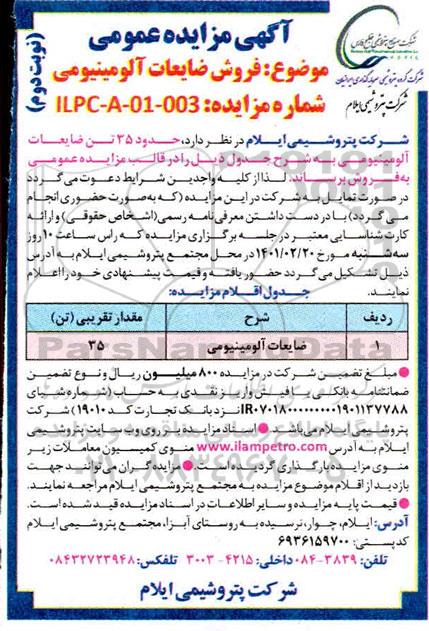 آگهی مزایده عمومی
(نوبت دوم)
موضوع: فروش ضایعات آلومینیومی
شماره مزایده: ILPC-A-01-003
شرکت صنایع پتروشیمی خلیج فارس
شرکت گروه پتروشیمی سرمایه گذاری ایرانیان
شرکت پتروشیمی ایلام
شرکت پتروشیمی ایلام در نظر دارد، حدود ۳۵ تن ضایعات
آلومینیومی به شرح جدول ذیل را در قالب مزایده عمومی
به فروش برساند. لذا از کلیه واجدین شرایط دعوت می گردد
در صورت تمایل به شرکت در این مزایده (که به صورت حضوری انجام
می گردد) با در دست داشتن معرفی نامه رسمی (اشخاص حقوقی) و ارائه
کارت شناسایی معتبر در جلسه برگزاری مزایده که راس ساعت ۱۰ روز
سه شنبه مورخ ۱۴۰۱/۰۲/۲۰ در محل مجتمع پتروشیمی ایلام به آدرس
ذیل تشکیل می گردد حضور یافته و قیمت پیشنهادی خود را اعلام
نمایند.
جدول اقلام مزایده:
ردیف شرح مقدار تقریبی (تن)
۱ ضایعات آلومینیومی ۳۵
● مبلغ تضمین شرکت در مزایده ۸۰۰ میلیون ریال و نوع تضمین
ضمانتنامه بانکی یا فیش واریز نقدی به حساب (شماره شبای
نزد بانک تجارت کد ۱۹۰۱۰) شرکت
پتروشیمی ایلام می باشد. ● اسناد مزایده بر روی وب سایت پتروشیمی
ایلام به آدرس www.ilampetro.com منوی کمیسیون معاملات زیر
منوی مزایده بارگذاری گردیده است. ● مزایده گران می توانند جهت
بازدید از اقلام موضوع مزایده به مجتمع پتروشیمی ایلام مراجعه نمایند.
● قیمت پایه مزایده و سایر اطلاعات در اسناد مزایده قید شده است.
آدرس: ایلام، چوار، نرسیده به روستای آبزا، مجتمع پتروشیمی ایلام
کدپستی: ۶۹۳۶۱۵۹۷۰۰
تلفن: ۳۸۳۹-۰۸۴ داخلی: ۴۲۱۵ - ۳۰۰۳ تلفکس: ۰۸۴۳۲۷۲۳۹۴۸
شرکت پتروشیمی ایلام